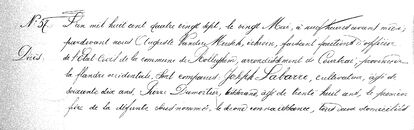 N° 57. L'an mil huit cent quatre vingt sept, le vingt Mai, à neuf heures avant midi,
pardevant nous Auguste Vander Meersch, échevin, faisant fonctions d'officier
Décès. de l'Etat Civil de la commune de Rolleghem, arrondissement de Courtrai, province de
la flandre occidentale, sont comparus Joseph Labarre, cultivateur, âgé de
soixante dix ans, Pierre Dumortier, âgé de trente huit ans, le premier
fils de la défunte sous nommée, le second connaissance, tous deux domiciliés